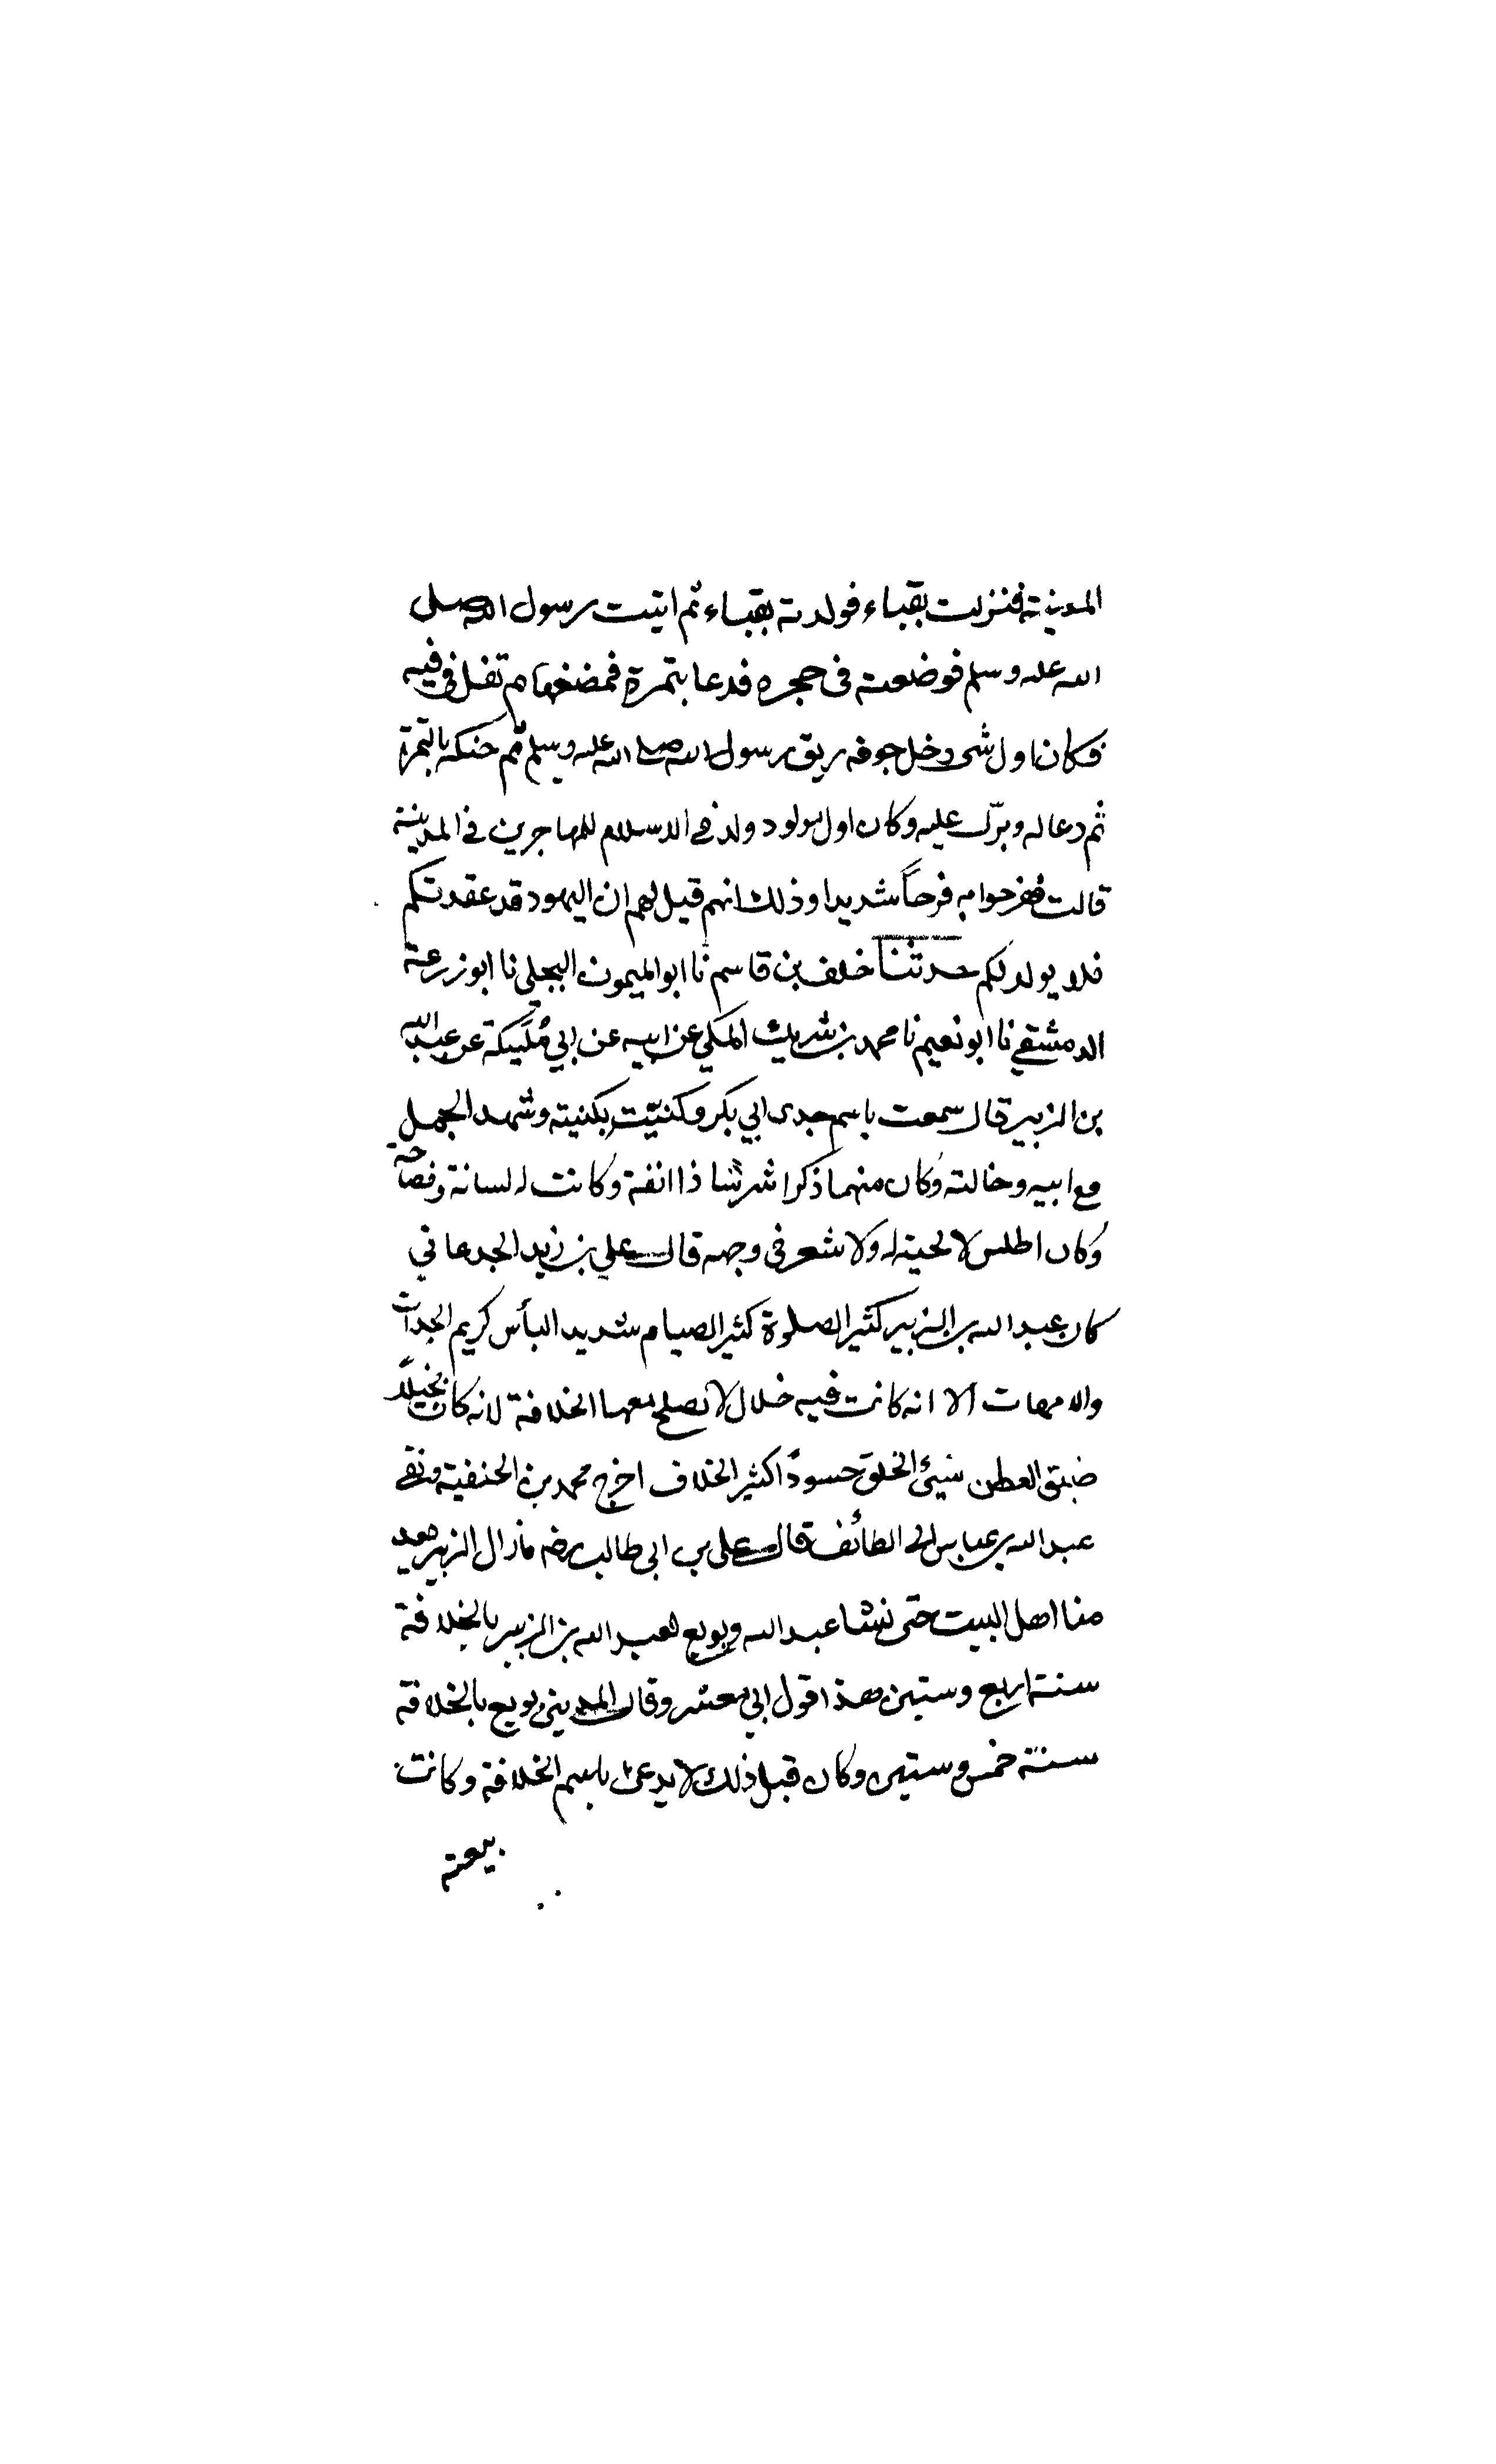 المدينة فنزلت بقباء فولدته بقباء ثم اتيت رسول الله صلى
الله عليه وسلم فوضعته فى حجره فدعا بتمرة فمضغها ثم تفل فى فيه
فكان اول شى دخل جوفه ريق رسول الله صلى الله عليه وسلم ثم حنكه بالتمرة
ثم دعا له وبرّك عليه وكان اول مولود ولد فى الاسلام للمهاجرين فى المدينة
قالت ففرحوا به فرحاً شديدا وذلك انهم قيل لهم ان اليهود قد عقدتكم
فلا يولد لكم حدثنا خلف بن قاسم نا ابو الميمون البجلي نا ابو زرعة
الدمشقي نا ابو نعيم نا محمد بن شريك المكي عن ابيه عن ابي مُلَيكة عن عبد الله
بن الزبير قال سمعت باسم جدى ابي بكر وكنّيت بكنيته وشهد الجمل
مع ابيه وخالته وكان منهما ذكرا شرثنا ذا انفة وكانت له لسانة وفصاحة
وكان اطلس لا لحية له ولا شعر فى وجهه قال علي بن زيد الجدعاني
كان عبد الله بن الزبير كثير الصلوة كثير الصيام شديد البأس كريم الجدات
والامهات الا انه كانت فيه خلال لا تصلح معها الخلافة لانه كان بخيلاً
ضيق العطن سيئ الخلق حسودًا كثير الخلاف اخرج محمد بن الحنفية ونفى
عبد الله بن عباس الى الطائف قال على بن ابى طالب رضه مازال الزبير يعد
منا اهل البيت حتى نشا عبد الله وبويع لعبد الله بن الزبير بالخلافة
سنة اربع وستين هذا قول ابي معشر وقال المديني بويع بالخلافة
سنة خمس وستين وكان قبل ذلك لا يدعى باسم الخلافة وكانت
بيعته